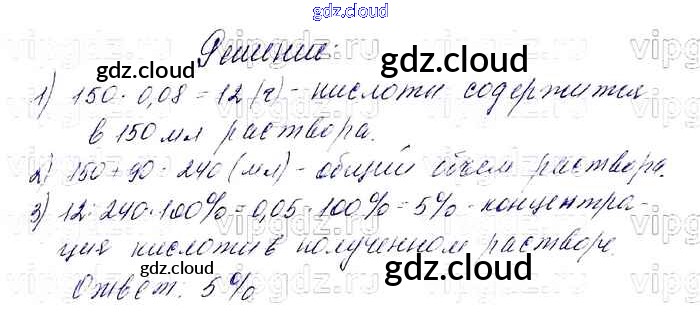 gdz.cloud
Решение:
1) 150 · 0,08 = 12 (г) - кислоты содержится
в 150 мл раствора.
2) 150 + 90 = 240 (мл) - общий объем раствора.
3) 12 : 240 · 100% = 0,05 · 100% = 5% - концентра-
ция кислоты в полученном растворе.
Ответ: 5%
gdz.cloud
gdz.cloud
gdz.cloud
gdz.cloud
gdz.cloud